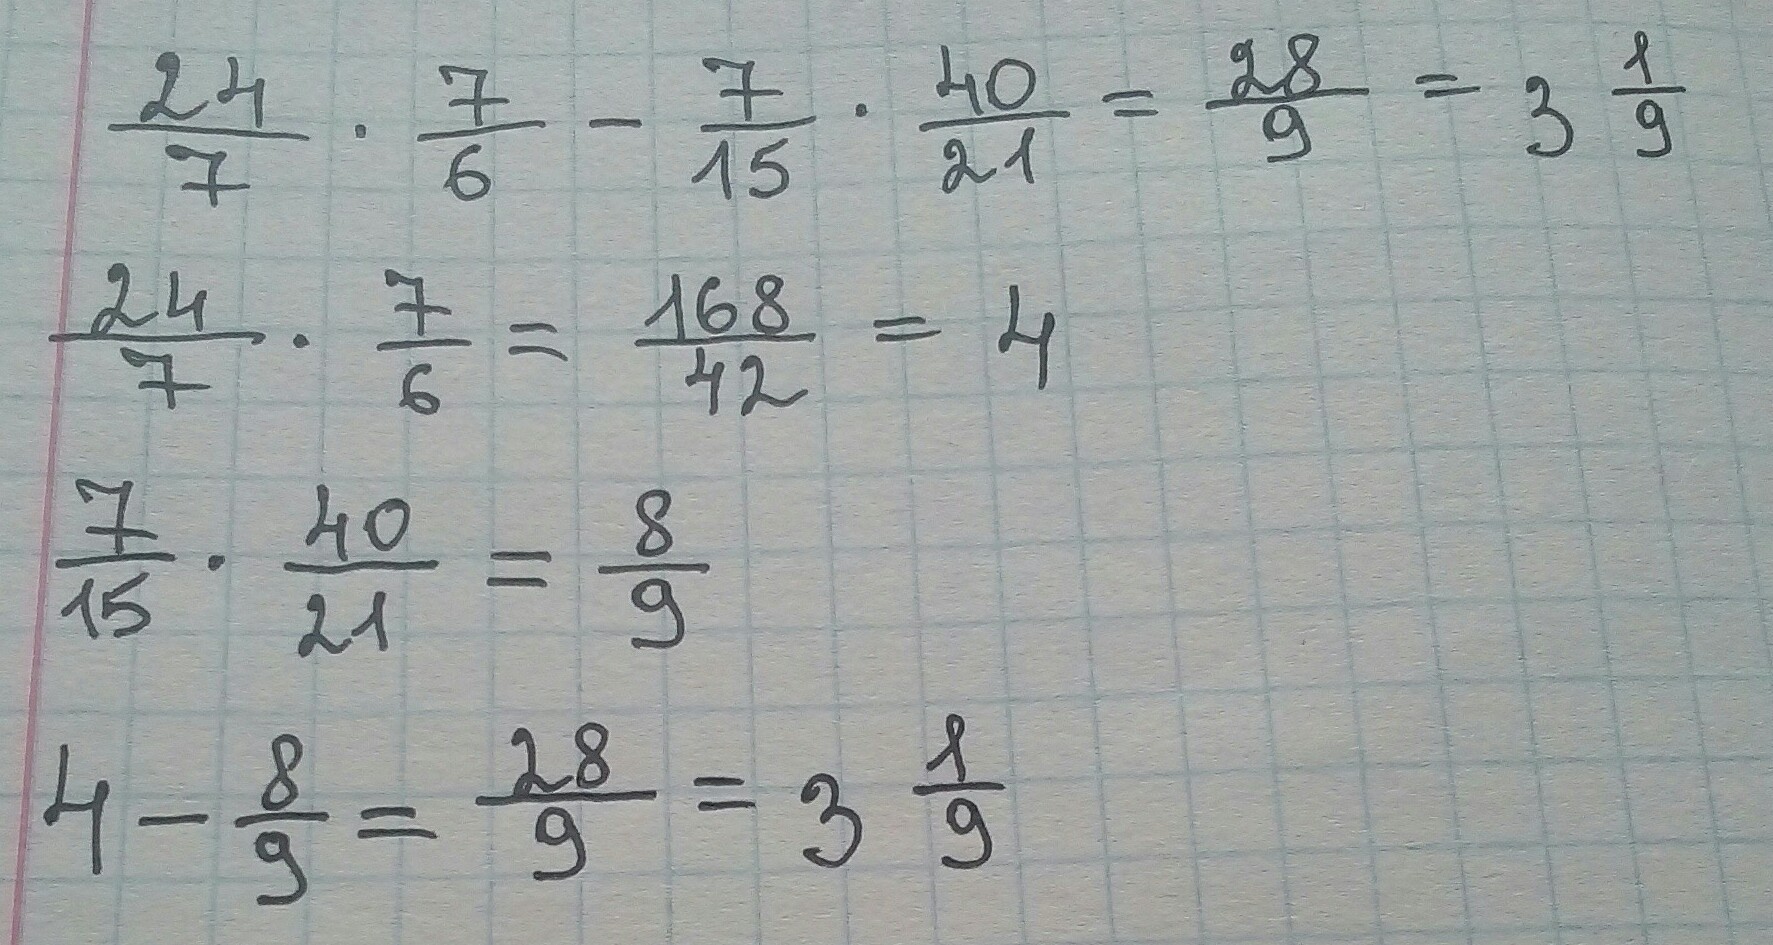 24/7 · 7/6 − 7/15 · 40/21 = 28/9 = 3 1/9
24/7 · 7/6 = 168/42 = 4
7/15 · 40/21 = 8/9
4 − 8/9 = 28/9 = 3 1/9